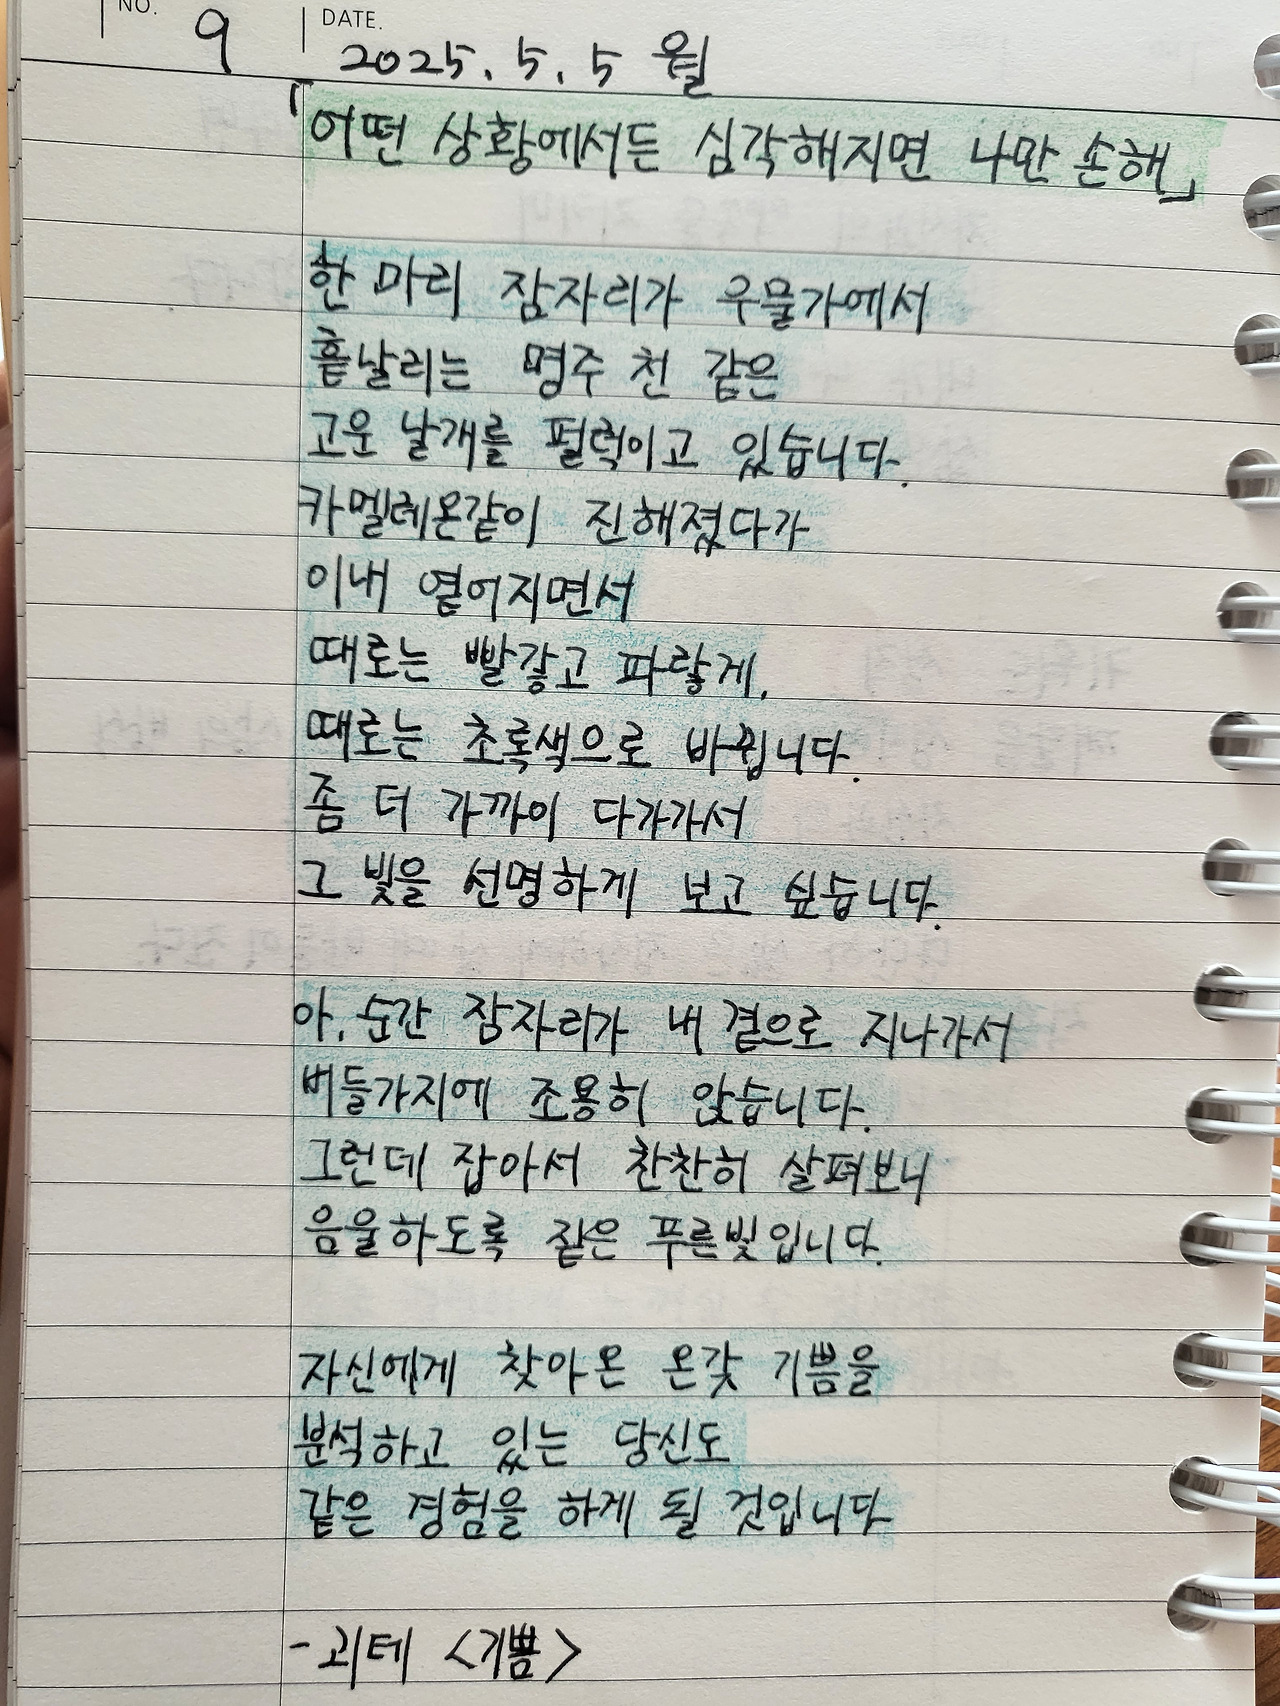 NO. 9 DATE. 2025. 5. 5 월
「어떤 상황에서든 심각해지면 나만 손해」
한 마리 잠자리가 우물가에서
흩날리는 명주 천 같은
고운 날개를 펄럭이고 있습니다.
카멜레온같이 진해졌다가
이내 옅어지면서
때로는 빨갛고 파랗게,
때로는 초록색으로 바뀝니다.
좀 더 가까이 다가가서
그 빛을 선명하게 보고 싶습니다.
아, 순간 잠자리가 내 곁으로 지나가서
버들가지에 조용히 앉습니다.
그런데 잡아서 찬찬히 살펴보니
음울하도록 짙은 푸른빛입니다.
자신에게 찾아온 온갖 기쁨을
분석하고 있는 당신도
같은 경험을 하게 될 것입니다
- 괴테 <기쁨>